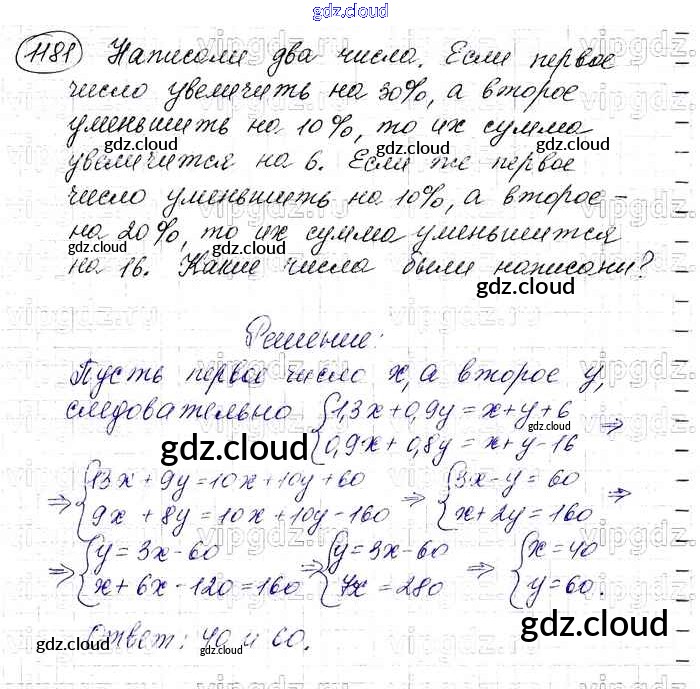 gdz.cloud
1181 Написали два числа. Если первое
число увеличить на 30%, а второе
уменьшить на 10%, то их сумма
увеличится на 6. Если же первое
число уменьшить на 10%, а второе –
на 20%, то их сумма уменьшится
на 16. Какие числа были написаны?
Решение:
Пусть первое число x, а второе y,
следовательно {1,3x+0,9y=x+y+6
{0,9x+0,8y=x+y-16 ⇒
⇒ {13x+9y=10x+10y+60
{9x+8y=10x+10y-160 ⇒ {3x-y=60
{x+2y=160 ⇒
⇒ {y=3x-60
{x+6x-120=160 ⇒ {y=3x-60
{7x=280 ⇒ {x=40
{y=60.
Ответ: 40 и 60.
gdz.cloud